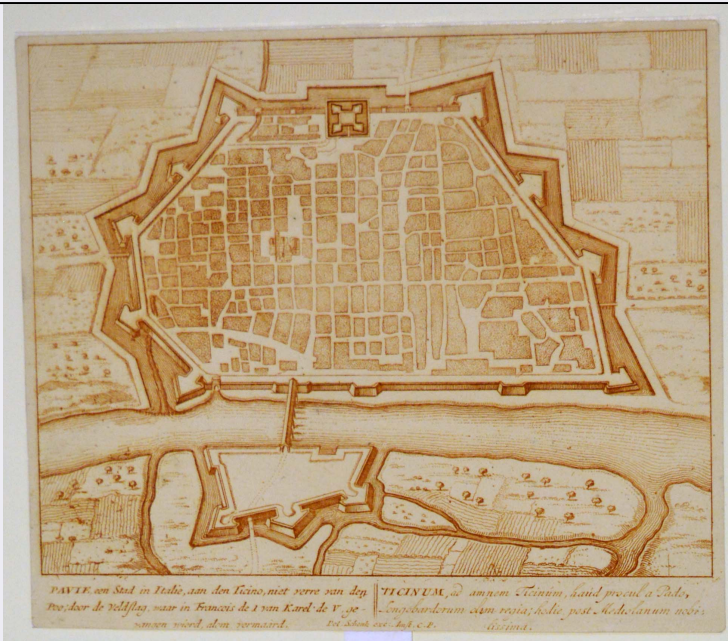 PAVIE, een Stad in Italie, aan den Ticino, niet verre van den
Poo; door de Veldslag, waar in Francois de I van Karel de V. ge-
vangen wierd, alom vermaard.
TICINUM, ad amnem Ticinum, haud procul a Pado,
Longobardorum olim regia; hodie, post Mediolanum nobi-
lissima.
Pet. Schenk exc. Amst. C.P.